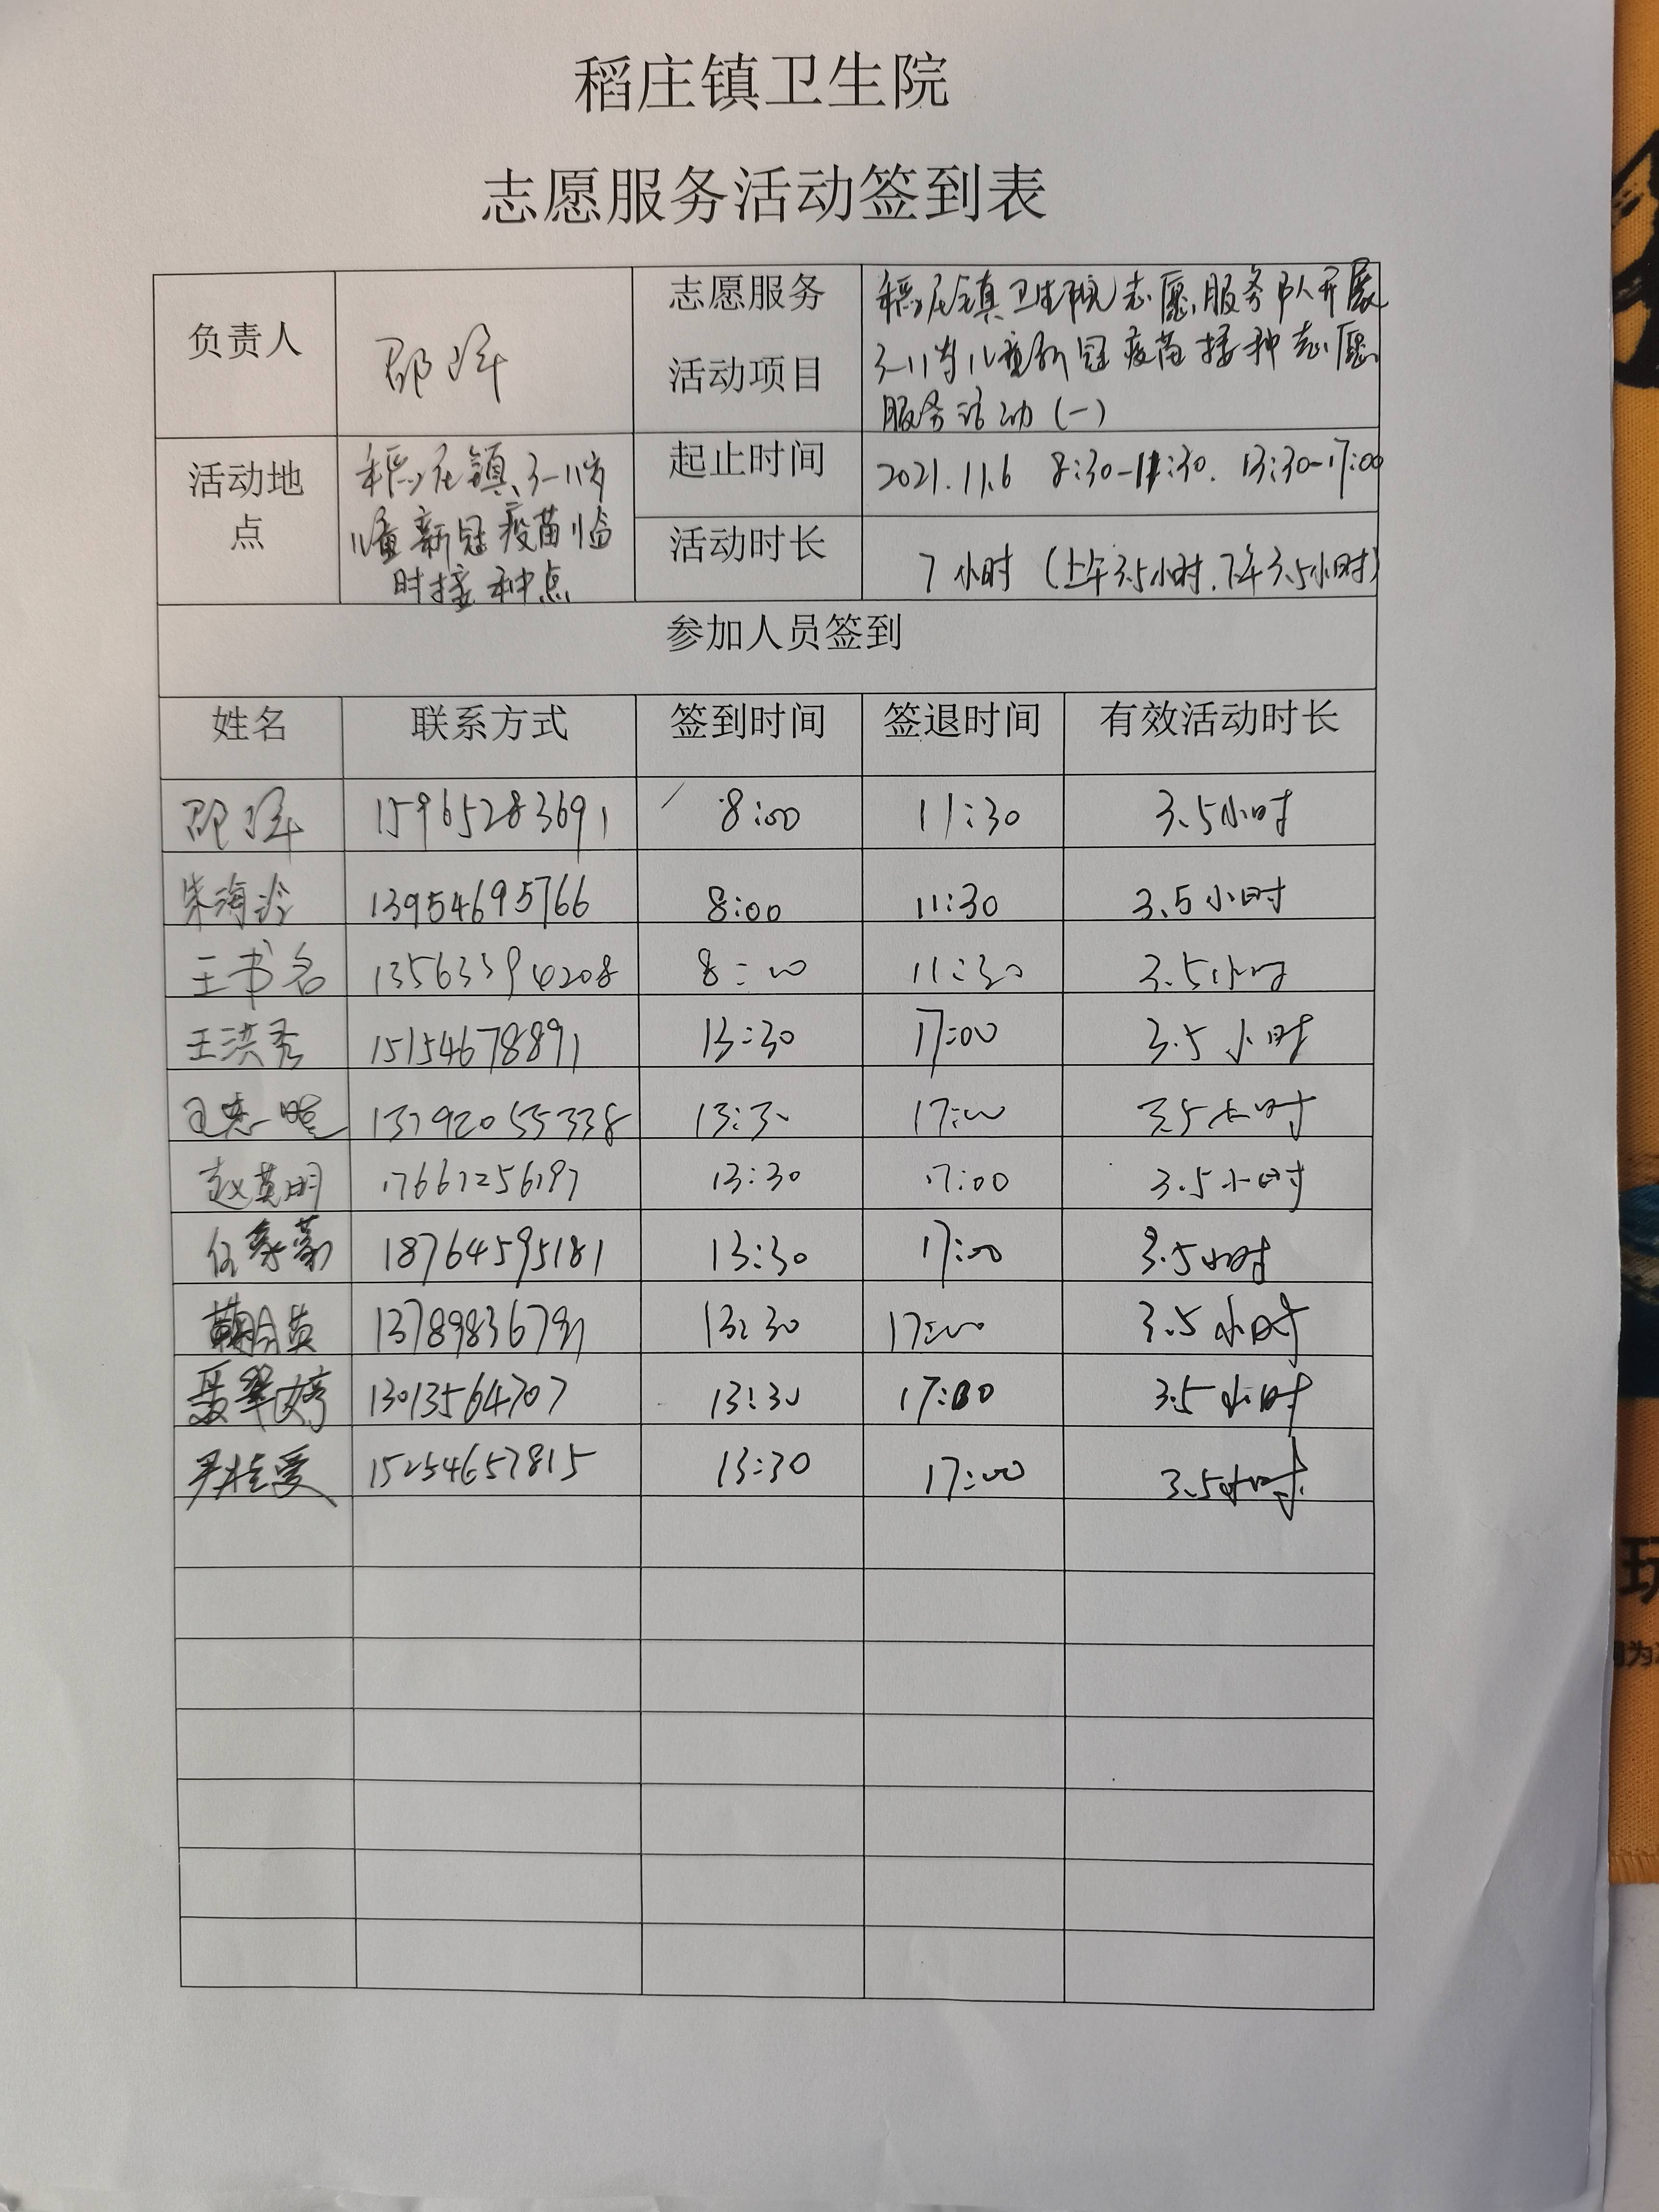 稻庄镇卫生院
志愿服务活动签到表
负责人
志愿服务
活动项目
稻庄镇卫生院志愿服务队开展
3-11岁儿童新冠疫苗接种志愿
服务活动(一)
活动地
点
稻庄镇3-11岁
儿童新冠疫苗临
时接种点
起止时间 2021.11.6 8:30-11:30. 13:30-17:00
活动时长 7小时 (上午3.5小时.下午3.5小时)
参加人员签到
姓名 联系方式 签到时间 签退时间 有效活动时长
15965283691 8:00 11:30 3.5小时
朱海玲 13954695766 8:00 11:30 3.5小时
王书名 13563394208 8:00 11:30 3.5小时
王洪秀 15154678891 13:30 17:00 3.5小时
13:30 17:00 3.5小时
赵英明 13:30 17:00 3.5小时
任豪豪 18764595181 13:30 17:00 3.5小时
13:30 17:00 3.5小时
聂翠婷 13013564707 13:30 17:00 3.5小时
尹桂爱 15254657815 13:30 17:00 3.5小时
玩